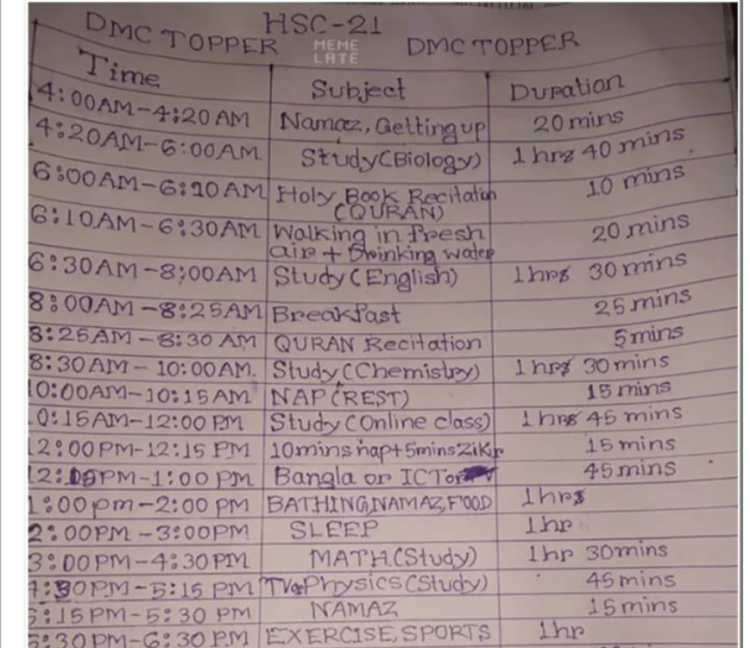 HSC-21
DMC TOPPER MEME LATE DMC TOPPER
Time Subject Duration
4:00AM-4:20 AM Namaz, Getting up 20 mins
4:20AM-6:00AM Study(Biology) 1 hrs 40 mins
6:00AM-6:10AM Holy Book Recitation (QURAN) 10 mins
6:10AM-6:30AM Walking in fresh air + Drinking water 20 mins
6:30AM-8:00AM Study(English) 1hrs 30 mins
8:00AM-8:25AM Breakfast 25 mins
8:25AM-8:30 AM QURAN Recitation 5mins
8:30AM-10:00AM. Study(Chemistry) 1 hrs 30 mins
10:00AM-10:15AM NAP(REST) 15 mins
0:15AM-12:00 PM Study(Online class) 1 hrs 45 mins
12:00PM-12:15 PM 10mins nap+5mins Zikr 15 mins
12:15PM-1:00 PM Bangla or ICT 45 mins
1:00pm-2:00 PM BATHING,NAMAZ,FOOD 1hrs
2:00PM-3:00PM SLEEP 1hr
3:00PM-4:30PM MATH(Study) 1hr 30mins
4:30PM-5:15 PM TV+Physics(Study) 45 mins
5:15PM-5:30 PM NAMAZ 15 mins
5:30PM-6:30 P.M EXERCISE, SPORTS 1hr